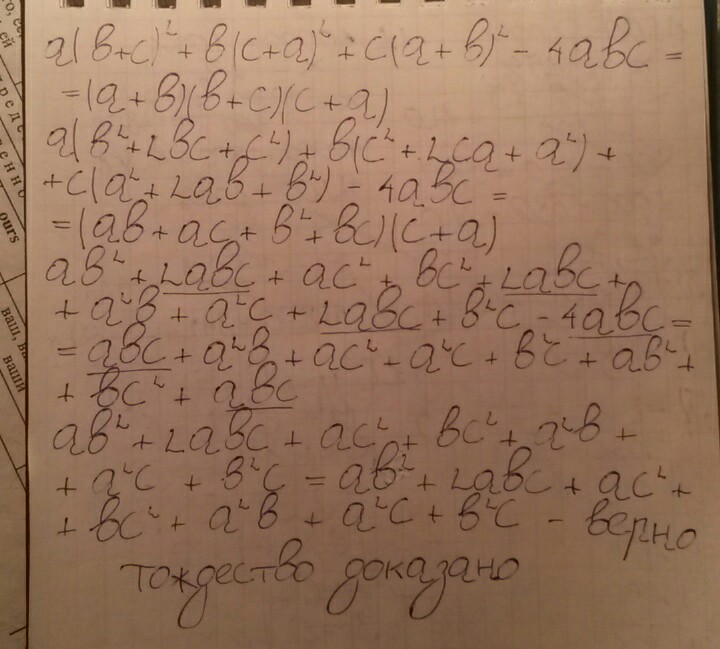 a(b+c)² + b(c+a)² + c(a+b)² - 4abc =
= (a+b)(b+c)(c+a)
a(b²+2bc+c²) + b(c²+2ca+a²) +
+c(a²+2ab+b²) - 4abc =
= (ab+ac+b²+bc)(c+a)
ab² + 2abc + ac² + bc² + 2abc +
+ a²b + a²c + 2abc + b²c - 4abc =
= abc + a²b + ac² + a²c + b²c + ab² +
+ bc² + abc
ab² + 2abc + ac² + bc² + a²b +
+ a²c + b²c = ab² + 2abc + ac² +
+ bc² + a²b + a²c + b²c - верно
тождество доказано
ours
ваши